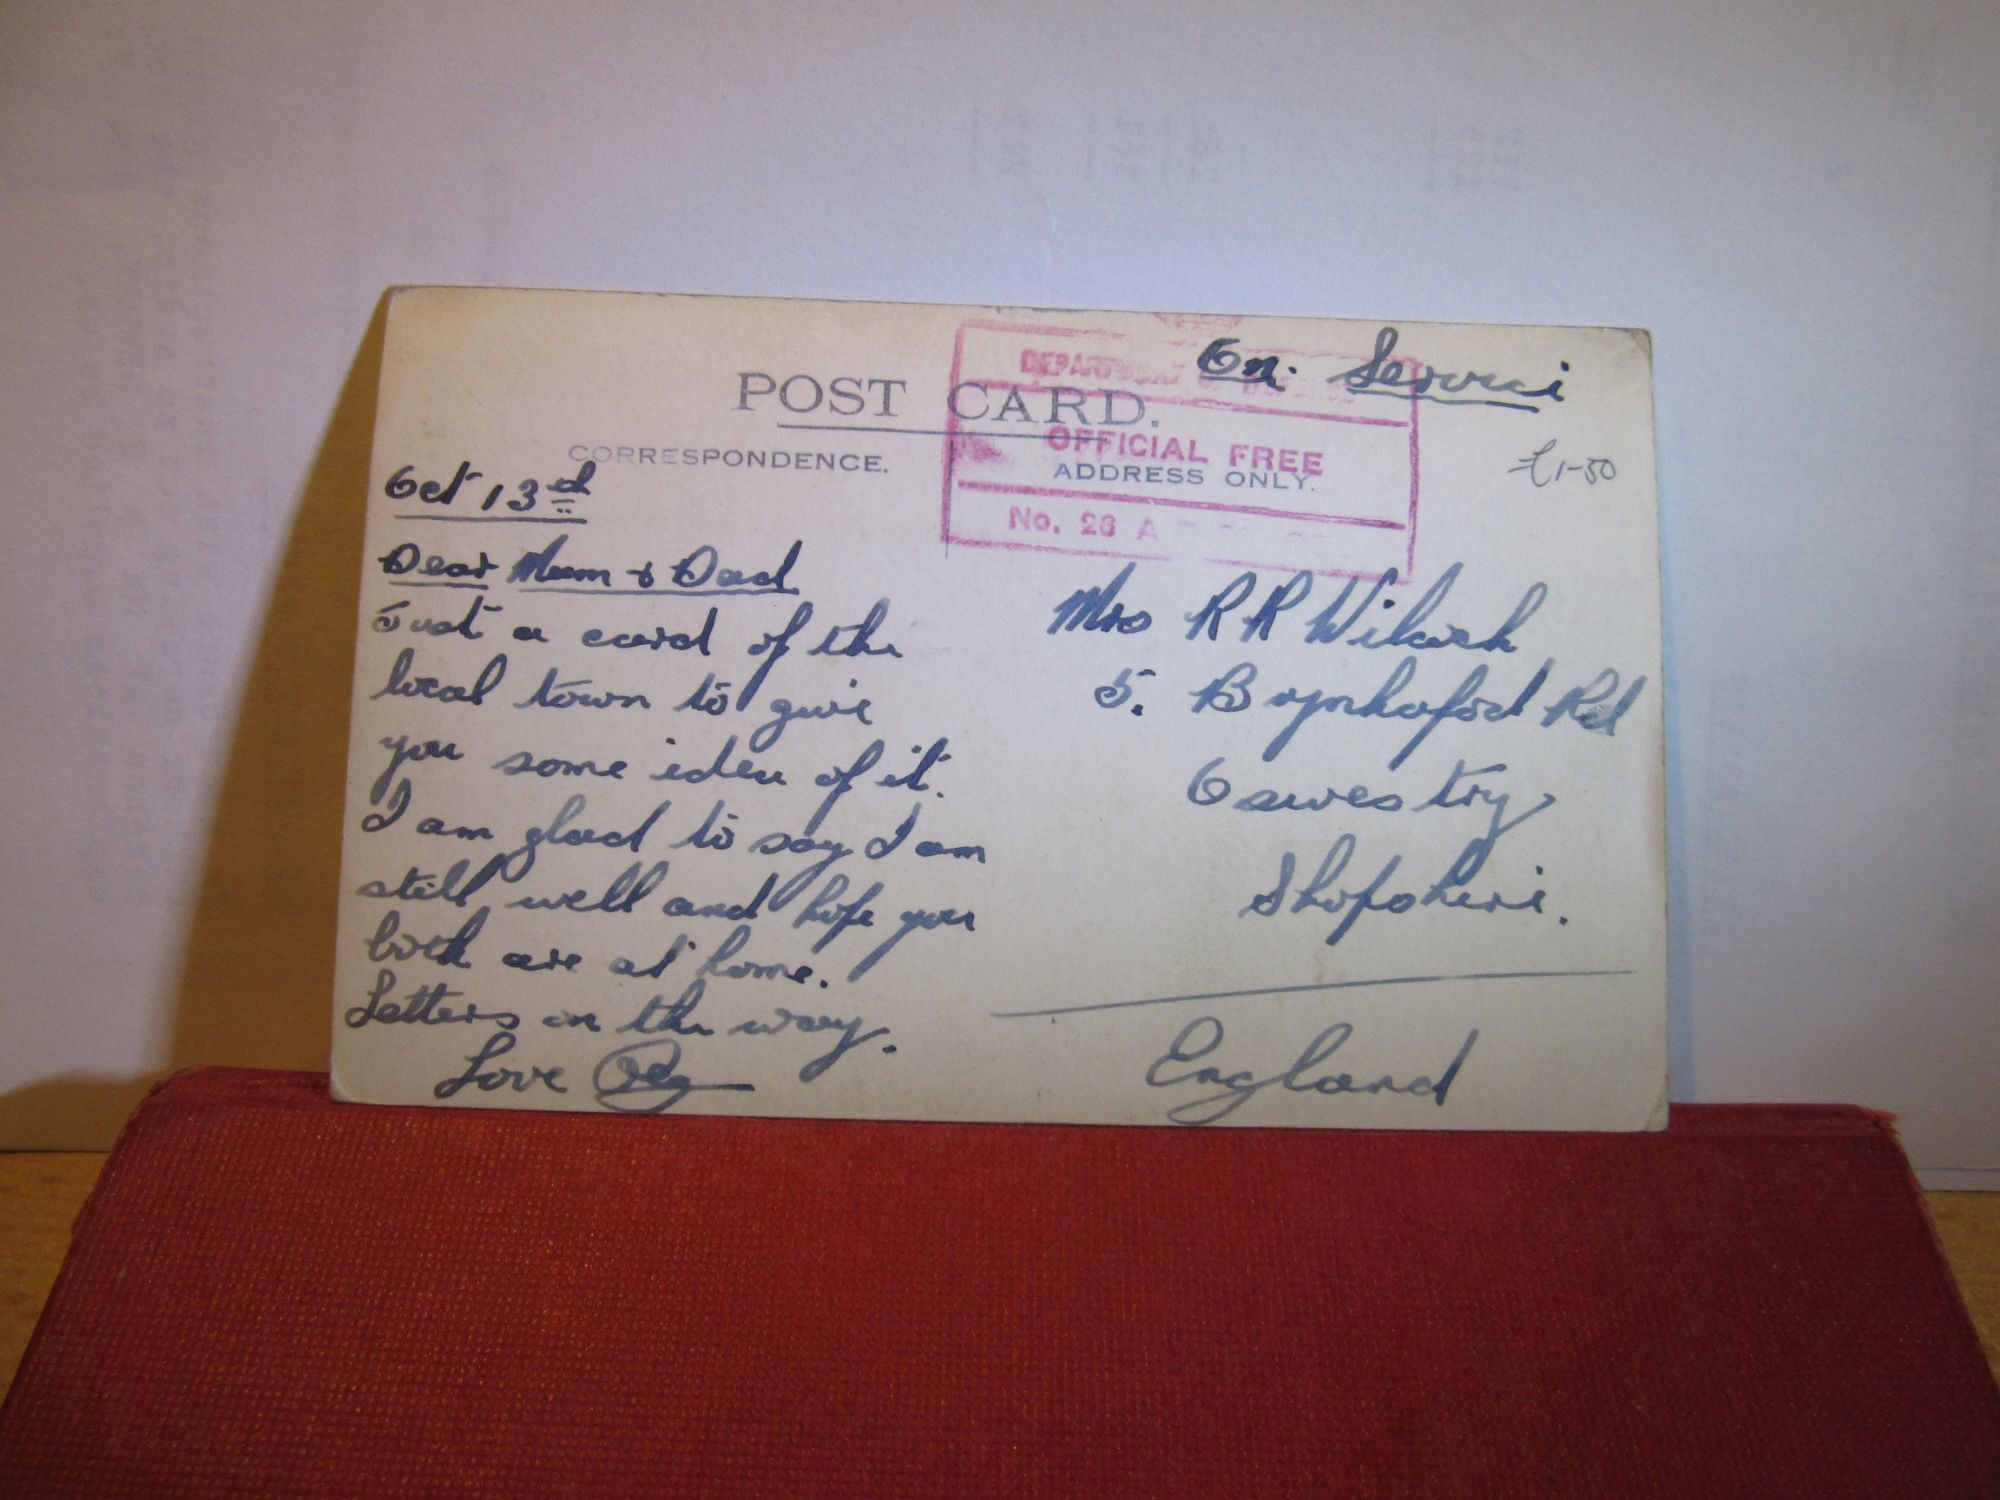 On Service
POST CARD.
DEPARTMENT OF
CORRESPONDENCE.
OFFICIAL FREE
ADDRESS ONLY.
No. 26 A
£1-50
Oct 13th
Dear Mum & Dad
Just a card of the
local town to give
you some idea of it.
I am glad to say I am
still well and hope you
both are at home.
Letters on the way.
Love Reg
Mrs R R
5. Rd
Oswestry
Shropshire.
England